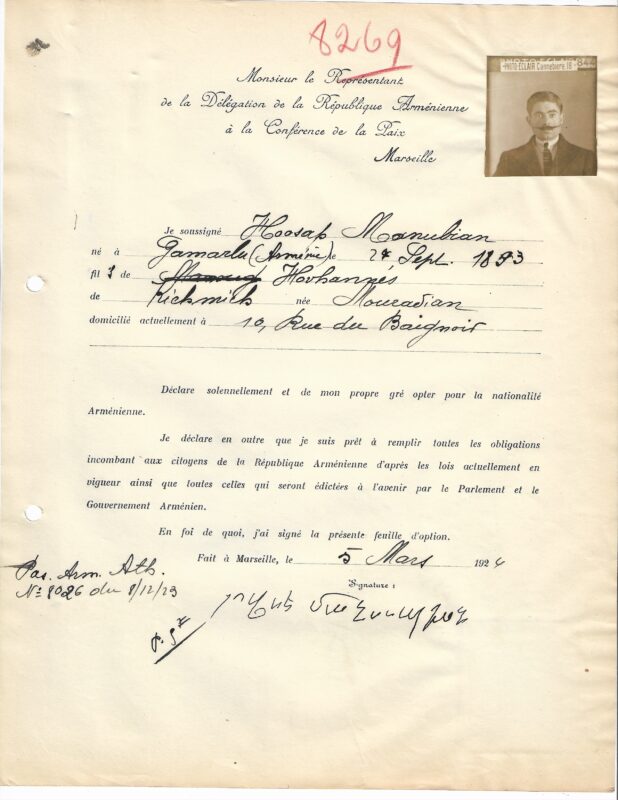 8269
PHOTO ECLAIR Cannebière, 18 - 844
Monsieur le Représentant
de la Délégation de la République Arménienne
à la Conférence de la Paix
Marseille
Je soussigné Hovsap Manukian
né à Gamarlu (Arménie) le 24 Sept. 1893
fils de Hovhannés
de Kichmich née Mouradian
domicilié actuellement à 10, Rue du Baignoir
Déclare solennellement et de mon propre gré opter pour la nationalité
Arménienne.
Je déclare en outre que je suis prêt à remplir toutes les obligations
incombant aux citoyens de la République Arménienne d'après les lois actuellement en
vigueur ainsi que toutes celles qui seront édictées à l'avenir par le Parlement et le
Gouvernement Arménien.
En foi de quoi, j'ai signé la présente feuille d'option.
Fait à Marseille, le 5 Mars 1924
Pas. Arm. Ath.
Signature :
Nº 8026 du 8/12/23